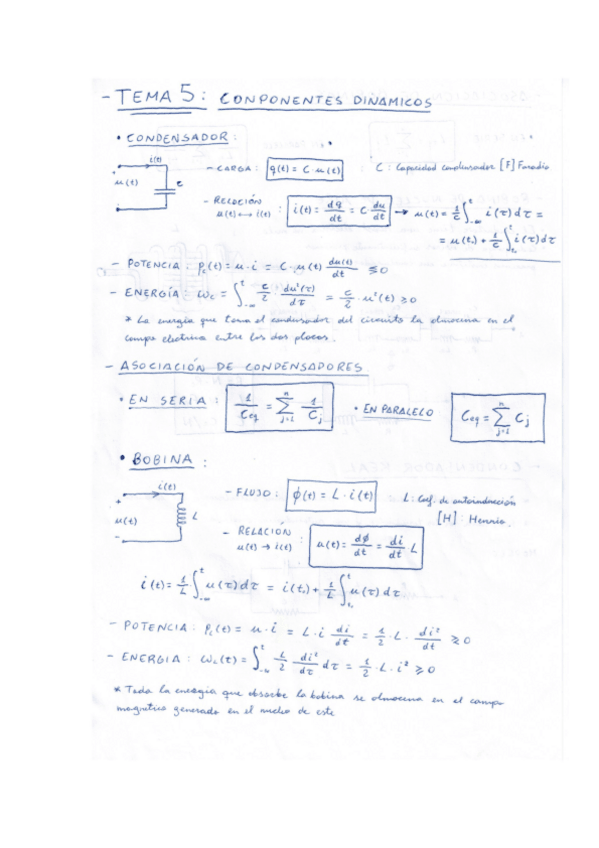 - TEMA 5: CONPONENTES DINAMICOS
• CONDENSADOR:
i(t)
+
u(t)
c
-
- CARGA: q(t) = C · u(t) ; C: Capacidad condensador [F] Faradio
- RELOCIÓN u(t) ⟷ i(t) : i(t) = dq/dt = C du/dt → u(t) = 1/C ∫_{-∞}^{t} i(τ) dτ =
= u(t₀) + 1/C ∫_{t₀}^{t} i(τ) dτ
- POTENCIA: P_c(t) = u · i = C · u(t) du(t)/dt ≶ 0
- ENERGÍA: ω_c = ∫_{-∞}^{t} c/2 · du²(τ)/dτ = c/2 · u²(t) ≥ 0
* La energia que toma el condensador del circuito la almacena en el
campo electrico entre las dos placas.
- ASOCIACIÓN DE CONDENSADORES
• EN SERIA : 1/C_eq = Σ_{j=1}^{n} 1/C_j
• EN PARALELO C_eq = Σ_{j=1}^{n} C_j
• BOBINA :
i(t)
+
u(t)
L
-
- FLUJO: ϕ(t) = L · i(t) L: Coef. de autoinducción
[H]: Henrio.
- RELACIÓN u(t) → i(t) : u(t) = dϕ/dt = di/dt · L
i(t) = 1/L ∫_{-∞}^{t} u(τ) dτ = i(t₀) + 1/L ∫_{t₀}^{t} u(τ) dτ
- POTENCIA: P_L(t) = u · i = L · i di/dt = 1/2 · L · di²/dt ≷ 0
- ENERGIA: ω_L(t) = ∫_{-∞}^{t} L/2 di²/dτ dτ = 1/2 · L · i² ≥ 0
* Toda la energia que absorbe la bobina se almacena en el campo
magnetico generado en el nucleo de este